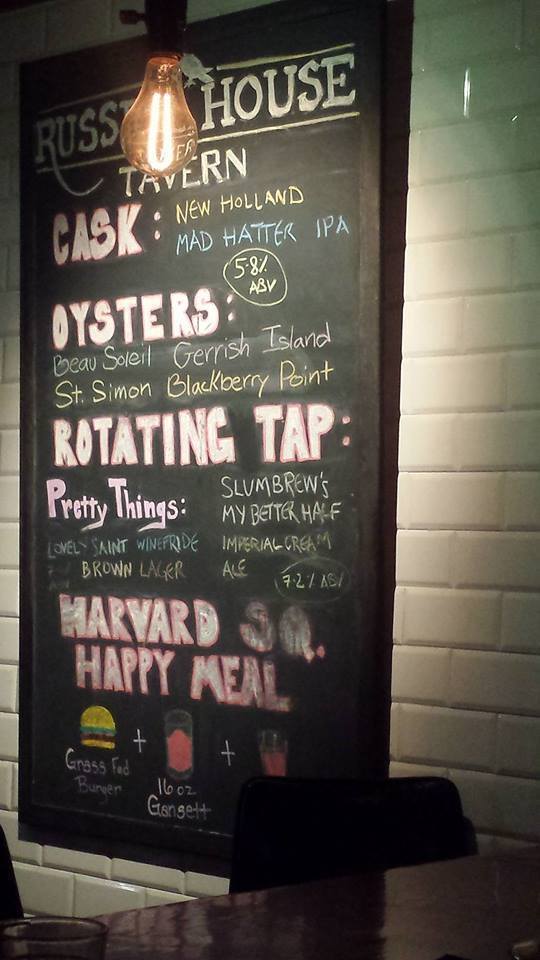 HOUSE
TAVERN
CASK: NEW HOLLAND
MAD HATTER IPA
5.8%
ABV
OYSTERS:
Beau Soleil Gerrish Island
St. Simon Blackberry Point
ROTATING TAP:
Pretty Things:
LOVELY SAINT WINEFRIDE
BROWN LAGER
SLUMBREW'S
MY BETTER HALF
IMPERIAL CREAM
ALE
7.2% ABV
HARVARD SQ.
HAPPY MEAL
+ +
Grass Fed
Burger
16oz
Gansett